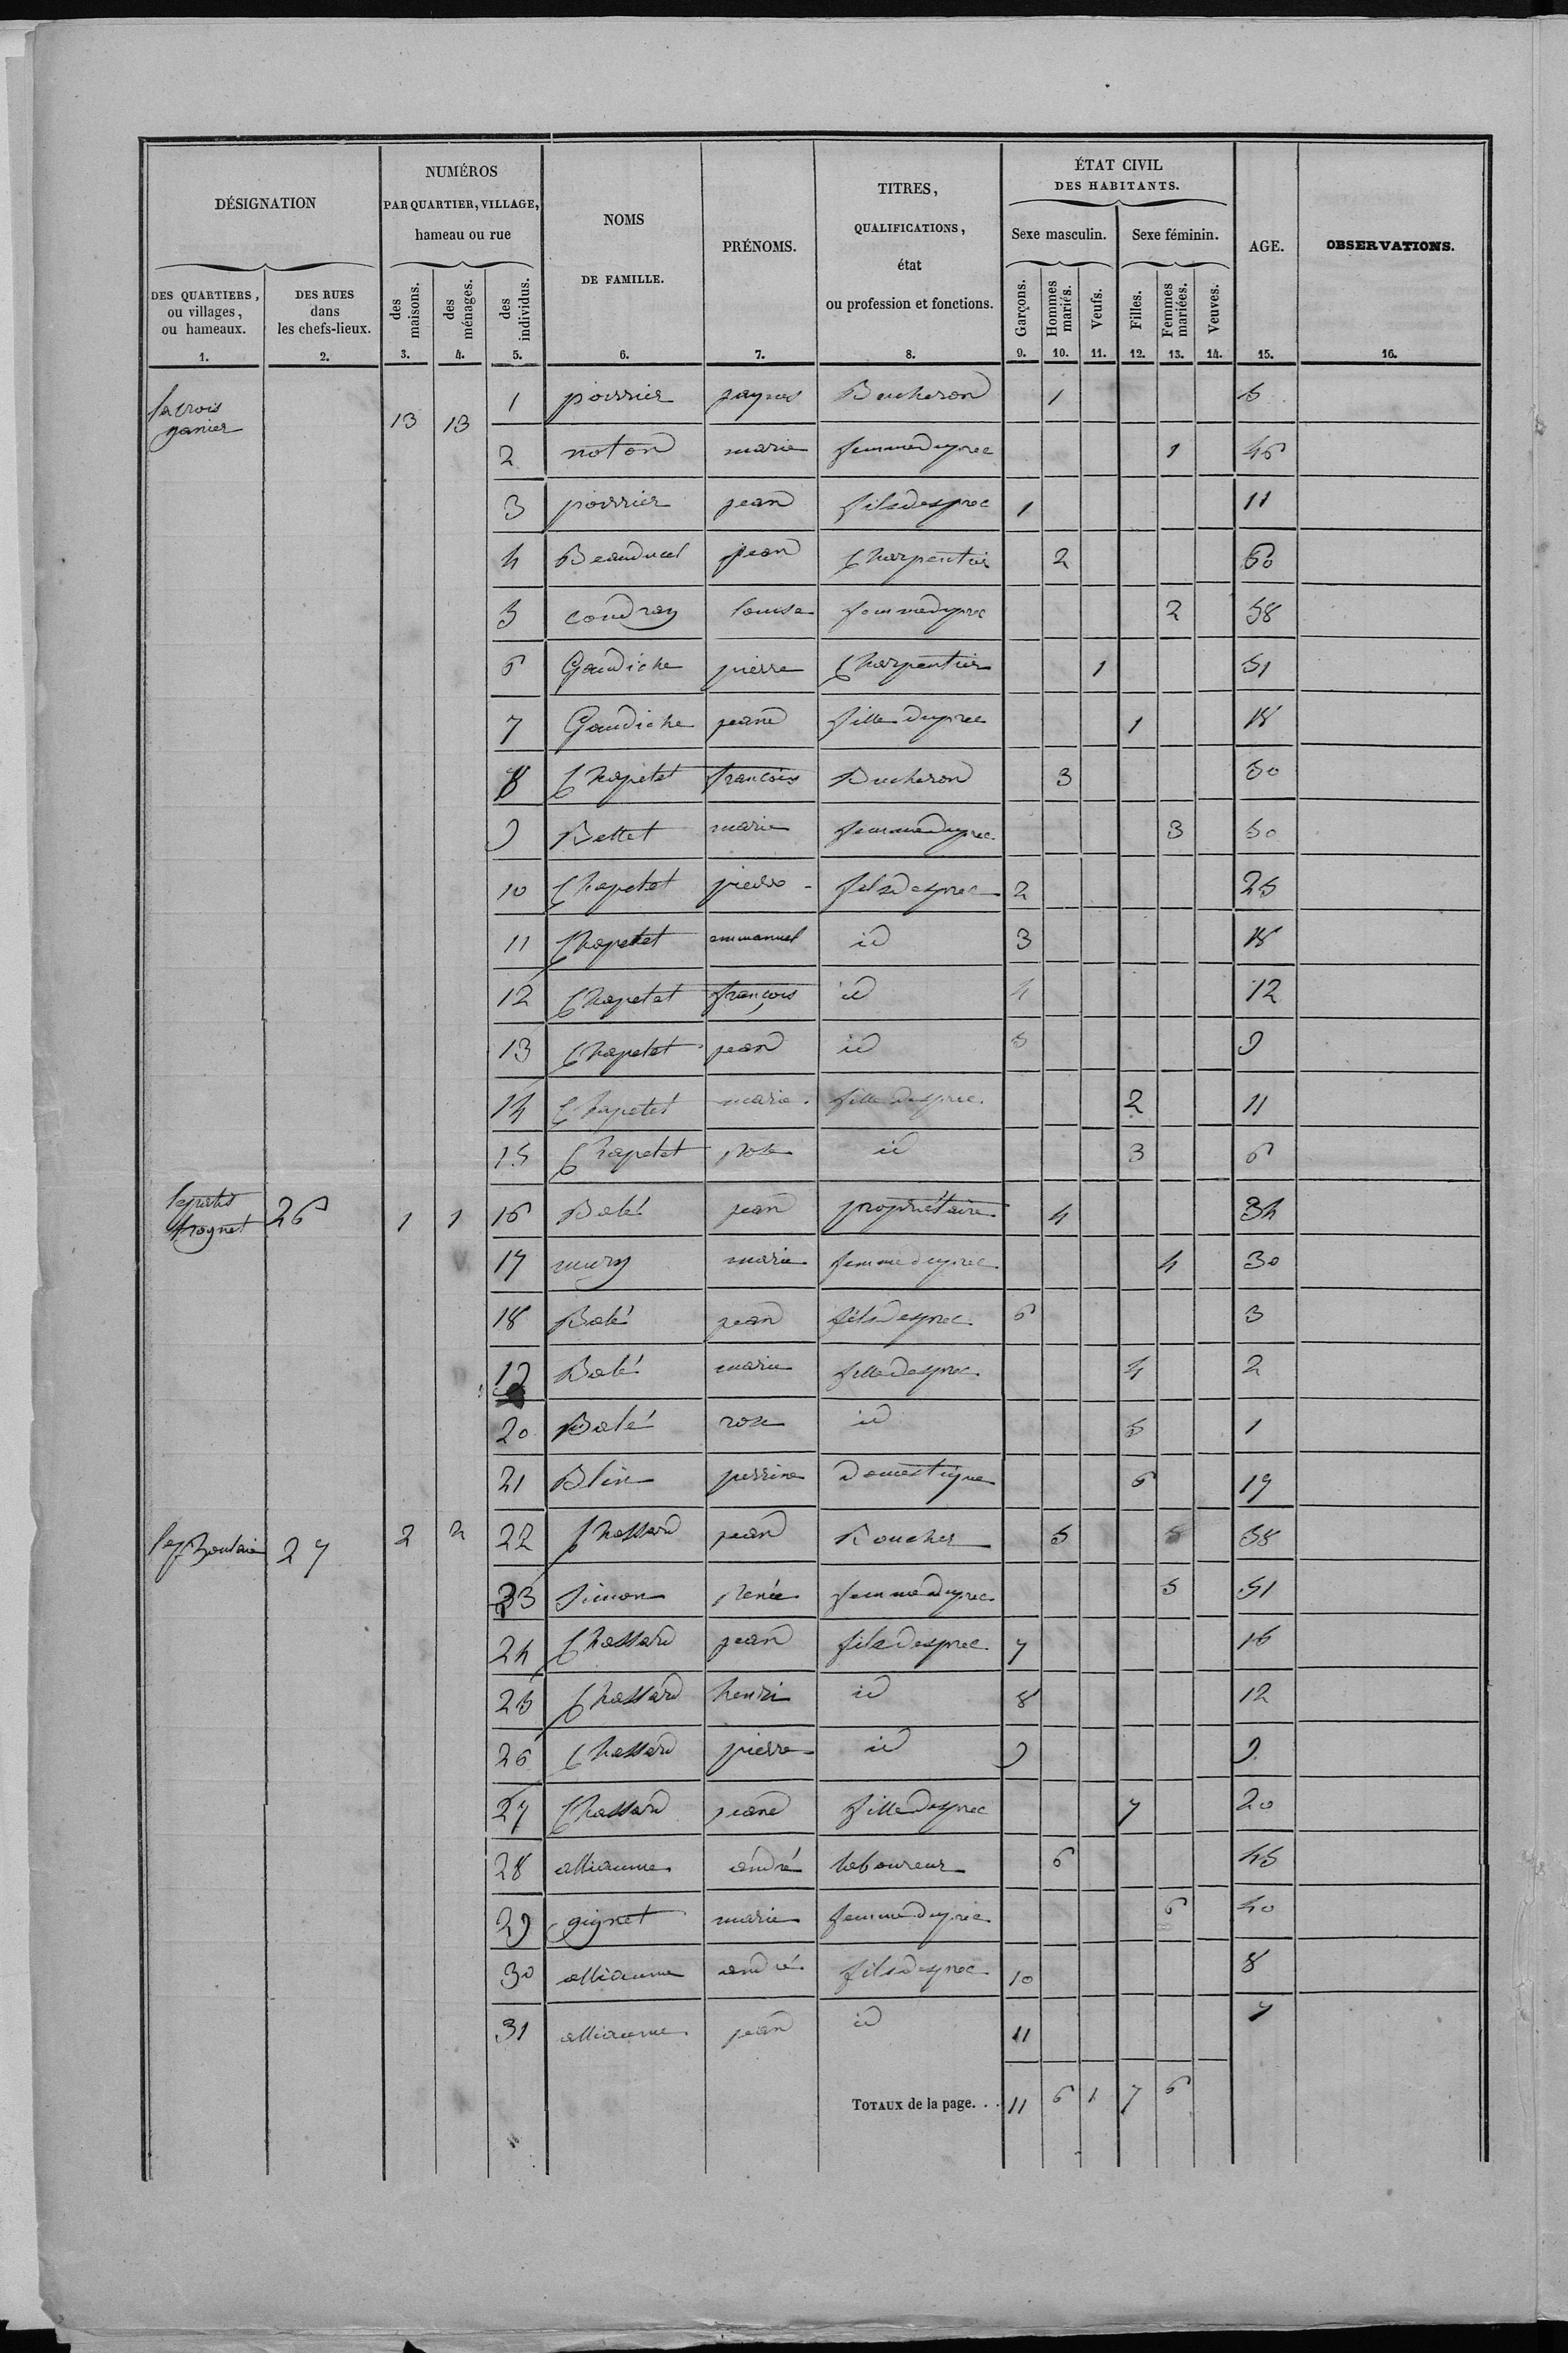 DÉSIGNATION
NUMÉROS
PAR QUARTIER, VILLAGE,
hameau ou rue
NOMS
DE FAMILLE.
PRÉNOMS.
TITRES,
QUALIFICATIONS,
état
ou profession et fonctions.
ÉTAT CIVIL
DES HABITANTS.
Sexe masculin.
Sexe féminin.
AGE.
OBSERVATIONS.
DES QUARTIERS,
ou villages,
ou hameaux.
DES RUES
dans
les chefs-lieux.
des maisons.
des ménages.
des individus.
Garçons.
Hommes mariés.
Veufs.
Filles.
Femmes mariées.
Veuves.
1. 2. 3. 4. 5. 6. 7. 8. 9. 10. 11. 12. 13. 14. 15. 16.
la crois
13 13 1 poirrier Bucheron 1 5
2 noton marie femme du prec 1 46
3 poirrier jean fils des prec 1 11
4 Beauducel jean Charpentier 2 60
5 coudray louise femme du prec 2 58
6 Gaudiche pierre Charpentier 1 51
7 Gaudiche jeane fille du prec 1 18
8 Chapetet françois Bucheron 3 50
9 Bettet marie femme du prec 3 50
10 Chapetet pierre fils des prec 2 25
11 Chapetet emmanuel id 3 18
12 Chapetet françois id 4 12
13 Chapetet jean id 5 9
14 Chapetet marie fille des prec. 2 11
15 Chapetet rose id 3 6
26 1 1 16 Balé jean propriétaire 4 34
17 mary marie femme du prec 4 30
18 Balé jean fils des prec 6 3
19 Balé marie fille des prec 4 2
20 Balé rose id 5 1
21 Blin perrine Domestique 6 19
27 2 2 22 Chassard jean Boucher 5 5 58
23 Simon renée femme du prec 5 51
24 Chassard jean fils des prec 7 16
25 Chassard henri id 8 12
26 Chassard pierre id 9 9
27 Chassard jeane fille des prec 7 20
28 alliaume andré laboureur 6 45
29 gignet marie femme du prec 6 40
30 alliaume andré fils des prec 10 8
31 alliaume jean id 11 7
TOTAUX de la page... 11 6 1 7 6